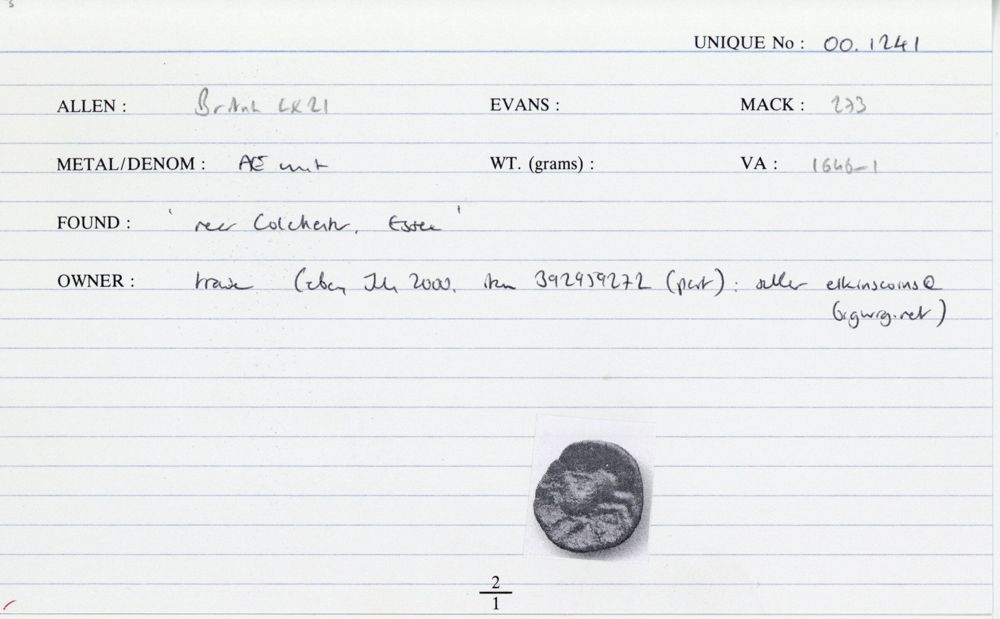 UNIQUE No : 00.1241
ALLEN : British LX21 EVANS : MACK : 273
METAL/DENOM : AE unit WT. (grams) : VA : 1646-1
FOUND : ' near Colchester, Essex '
OWNER : trade (ebay July 2000. item 392959272 (part) : seller elkinscoins@
)
2
1